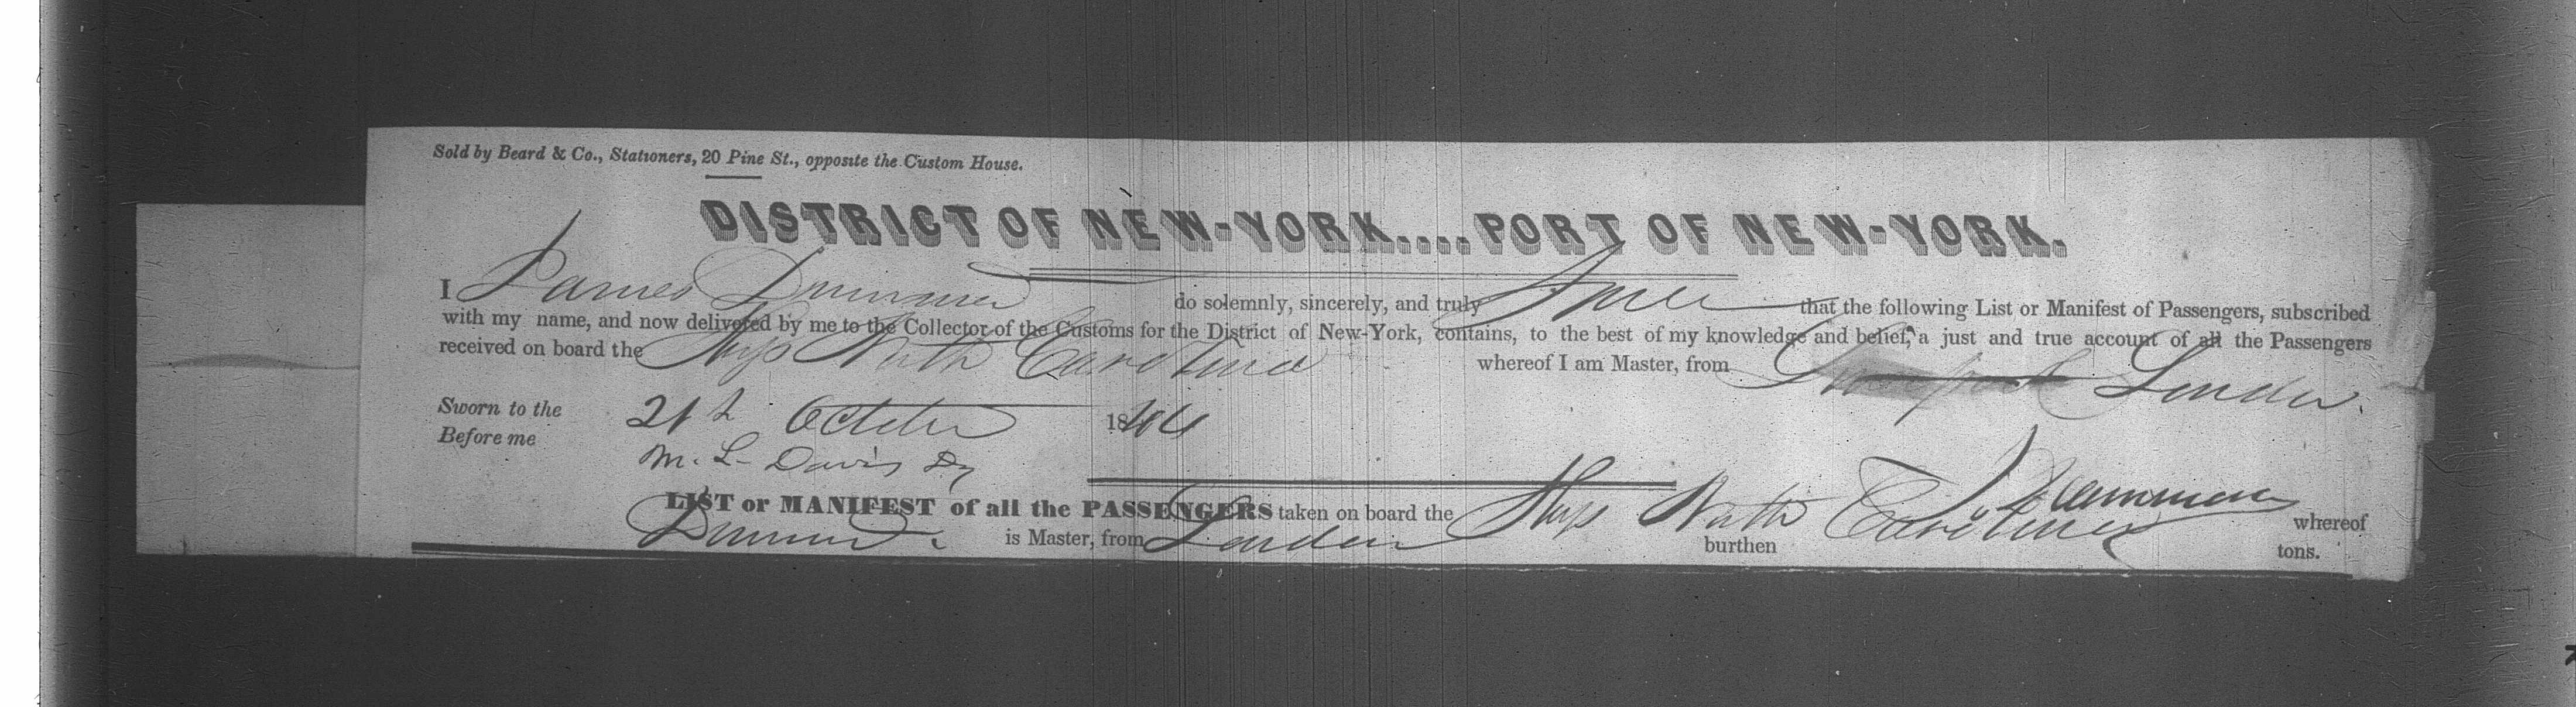 Sold by Beard & Co., Stationers, 20 Pine St., opposite the Custom House.
DISTRICT OF NEW-YORK....PORT OF NEW-YORK.
I James Drummer do solemnly, sincerely, and truly Swear that the following List or Manifest of Passengers, subscribed
with my name, and now delivered by me to the Collector of the Customs for the District of New-York, contains, to the best of my knowledge and belief, a just and true account of all the Passengers
received on board the Ship North Carolina whereof I am Master, from London.
Sworn to the 21st October 184
Before me M. L. Davis Dy
LIST or MANIFEST of all the PASSENGERS taken on board the Ship North Carolina whereof
is Master, from London burthen tons.